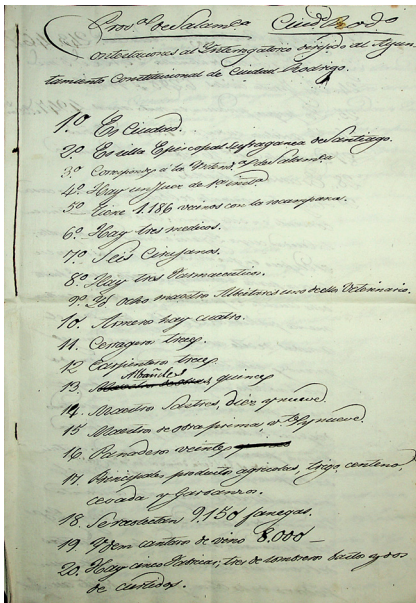 Prov.ª de Salam.ca Ciud. Rodº
Contestaciones al Interrogatorio dirijido al Ayun-
tamiento Constitucional de Ciudad Rodrigo.
1.º Es Ciudad.
2.º Es silla Episcopal sufraganea de Santiago.
3.º Corresponde á la de Salamca
4.º Hay un Juez de
5.º Tiene 1.186 vecinos con la
6.º Hay tres medicos.
7.º Seis Cirujanos.
8.º Hay tres Farmaceuticos.
9.º Yd. ocho maestros Albeitares uno de ellos Veterinario.
10. Armeros hay cuatro.
11. Cerrageros trece.
12 Carpinteros trece
Albañiles
13. quince
14 Maestros Sastres, diez y nueve.
15 Maestros de obra prima, y nueve.
16. Panaderos veinte
17. Principales productos agricolas, trigo, centeno,
cevada y garbanzos.
18. Se recolectan 9.150 fanegas.
19 Ydem cantaros de vino 8.000 –
20. Hay cinco Fabricas; tres de sombreros basto y dos
de curtidos.